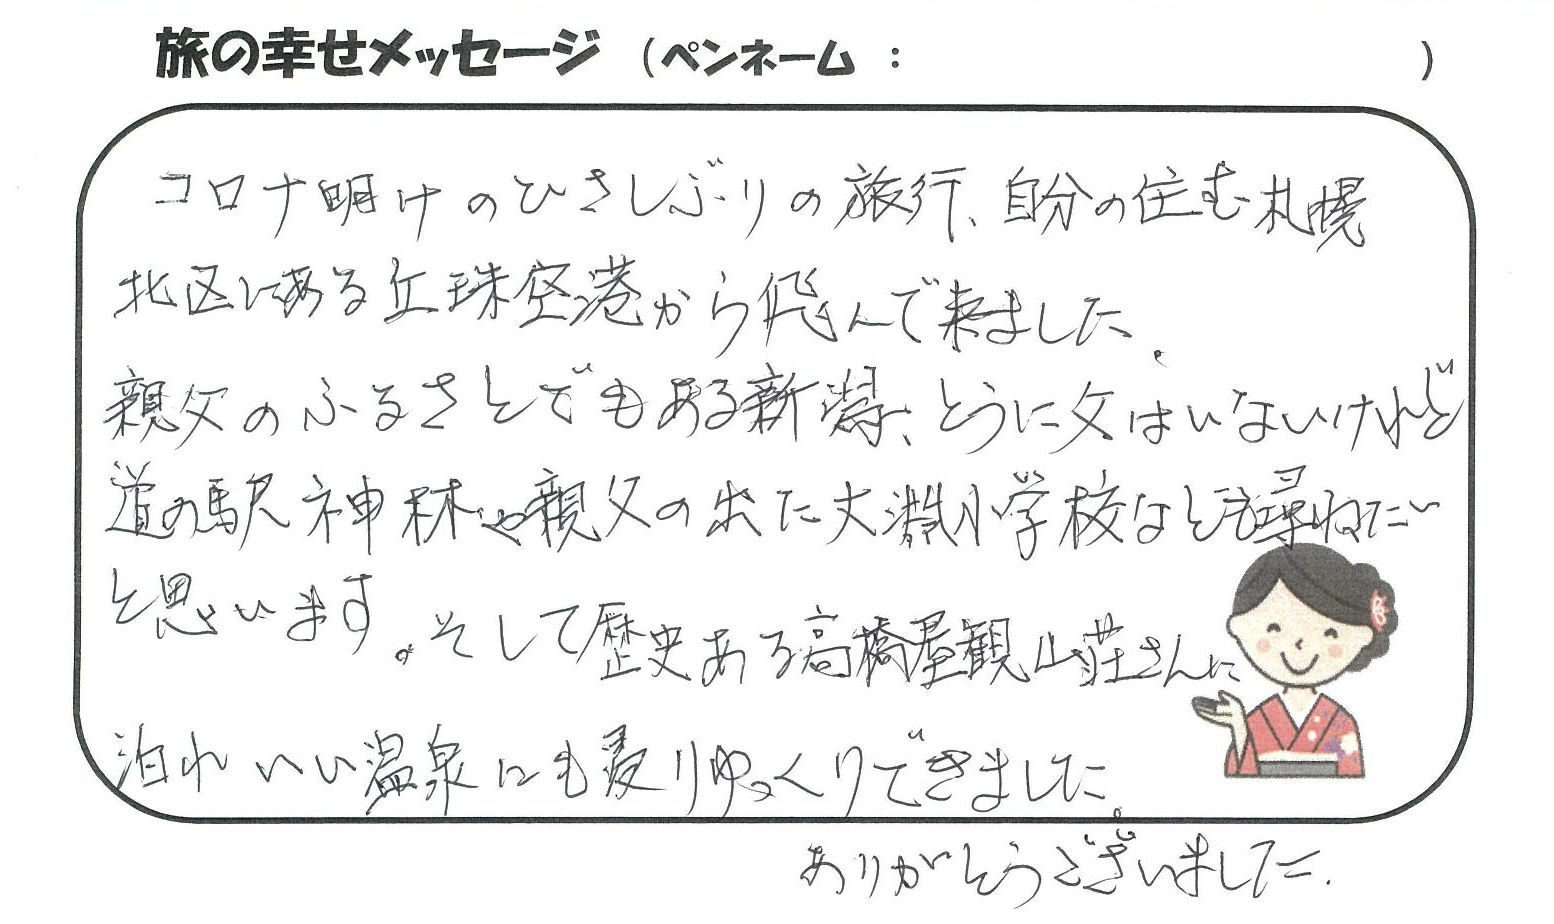 旅の幸せメッセージ (ペンネーム : )
コロナ明けのひさしぶりの旅行、自分の住む札幌
北区にある丘珠空港から飛んで来ました。
親父のふるさとでもある新潟、とうに父はいないけれど
道の駅神林や親父の出た大淵小学校なども尋ねたい
と思います。そして歴史ある高橋屋観山荘さんに
泊れいい温泉にも浸りゆっくりできました。
ありがとうございました.